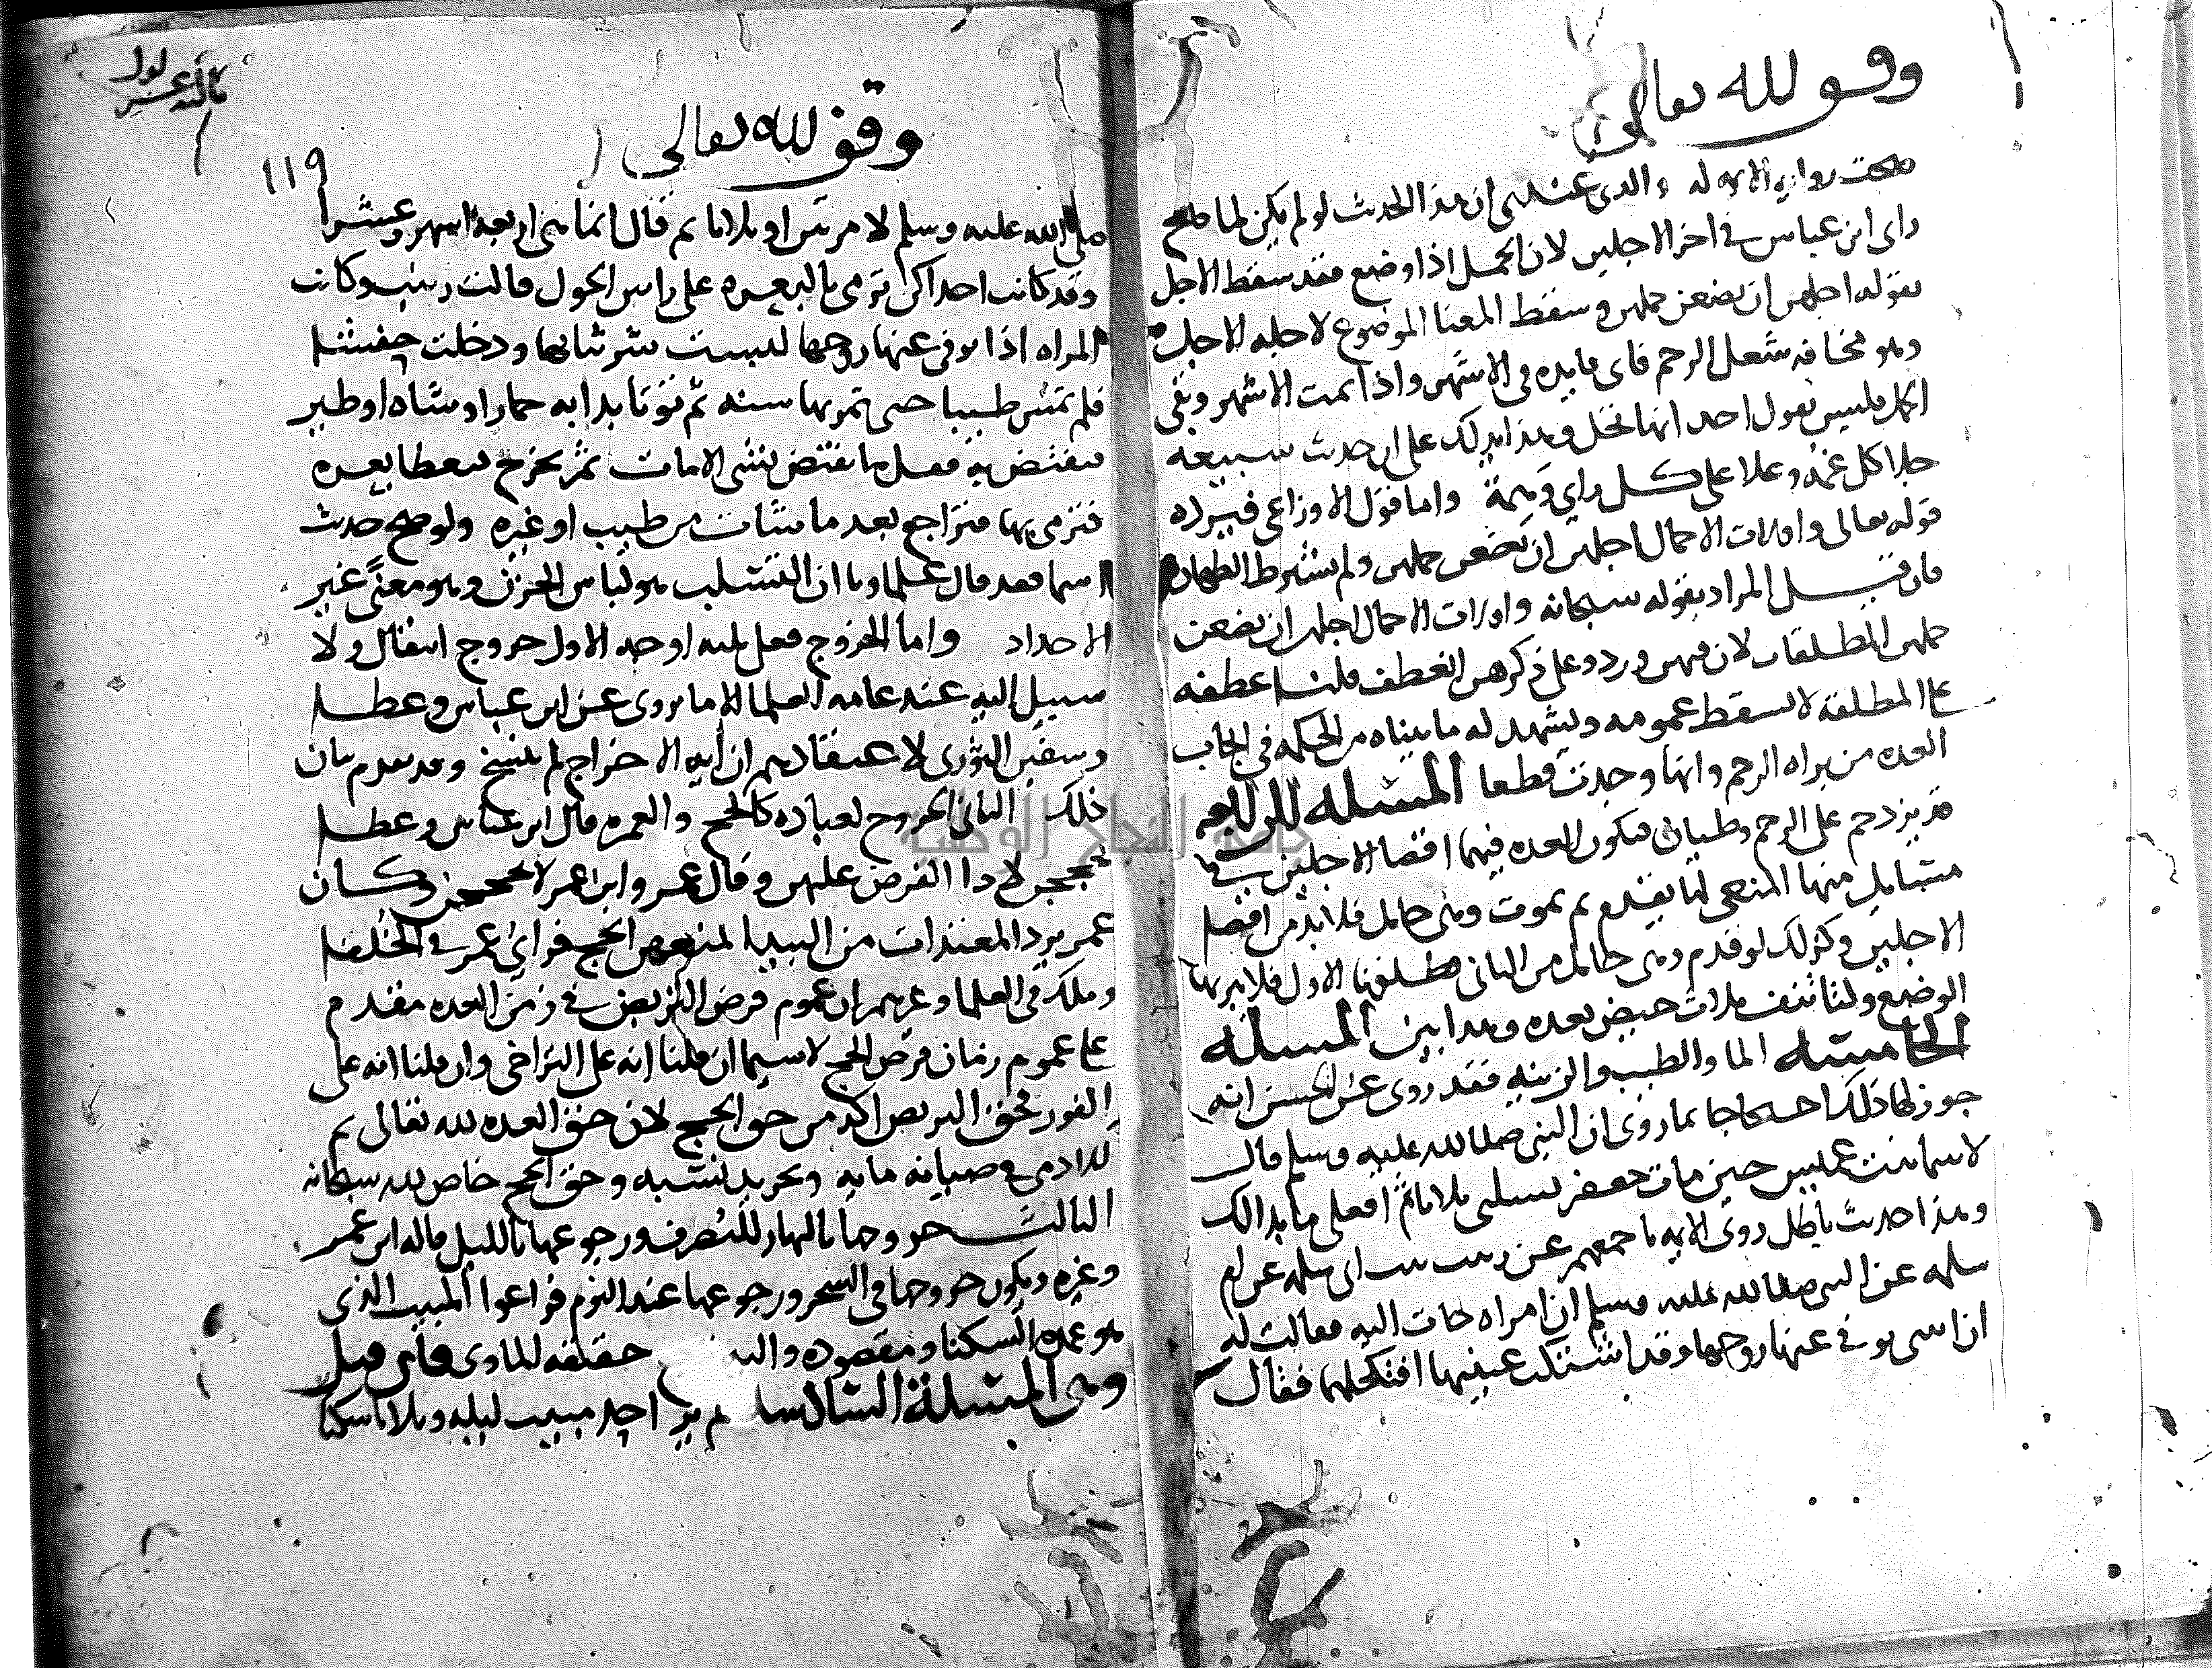 وقف لله تعالى
صحت رواية الايه له والدى عندى ان هذا الحديث لو لم يكن لما صح
راى ابن عباس في اخر الاجلين لان الحمل اذا وضع فقد سقط الاجل
بقوله اجلهن ان يضعن حملهن وسقط المعنا الموضوع لاجله الاجل
وهو مخافه شغل الرحم فاى فايده في الاشهر واذا تمت الاشهر وبقى
الحمل فليس يقول احد انها تحل وهذا يدلك على ان حديث سبيعه
جلا كل غمه وعلا على كل راي وهمة واما قول الاوزاعى فيرده
قوله تعالى واولات الاحمال اجلهن ان يضعن حملهن ولم يشترط الطهاره
فان قيل المراد بقوله سبحانه واولات الاحمال اجلهن ان يضعن
حملهن المطلقات لان فيهن ورد وعلى ذكرهن انعطف قلنا عطفه
على المطلقه لا يسقط عمومه ويشهد له ما بيناه من الحكمه في ايجاب
العده من براه الرحم وانها وجدت قطعا المسله الرابعه
قد يزدحم على الرحم وطيان فتكون العده فيهما اقصا الاجلين في
مسايل منها المنعى لها يقدم ثم يموت وهى حامل فلا بد من اقصا
الاجلين وكذلك لو قدم وهى حامل من الثانى فطلقها الاول فلا يبريها
الوضع ولتاتنف ثلاث حيض بعده وهذا بين المسله
الخامسه الما والطيب والزينه فقد روى عن الحسن انه
جوز لها ذلك احتجاجا بما روى ان النبى صلى الله عليه وسلم قال
لاسما بنت عميس حين مات جعفر تسلبى ثلاثا ثم افعلى ما بدا لك
وهذا حديث باطل روى الايمه باجمعهم عن زينب بنت ابى سلمه عن ام
سلمه عن النبى صلى الله عليه وسلم ان امراه جات اليه فقالت له
ان ابنتى توفي عنها زوجها وقد اشتكت عينيها افنكحلهما فقال
وقف لله تعالى
١١٩
صلى الله عليه وسلم لا مرتين او ثلاثا ثم قال انما هى اربعه اشهر وعشرا
وقد كانت احداكن ترمى بالبعره على راس الحول قالت زينب وكانت
المراه اذا توفى عنها زوجها لبست شر ثيابها ودخلت حفشا
فلم تمس طيبا حتى تمر بها سنه ثم توتا بدابه حمار او شاه او طير
فتفتض به فقل ما تفتض بشى الا مات ثم تخرج فتعطا بعره
فترمى بها فتراجع بعد ما شات من طيب او غيره ولو صح حديث
اسما فقد قال علماونا ان التسلب هو لباس الحزن وهو معنى غير
الاحداد واما الخروج فعلى ثلثه اوجه الاول خروج انتقال ولا
سبيل اليه عند عامه العلما الا ما روى عن ابن عباس وعطا
وسفين الثورى لاعتقادهم ان ايه الاخراج لم تنسخ وقد تقدم بيان
ذلك الثانى الخروج لعباده كالحج والعمره قال ابن عباس وعطا
يحججن لادا الفرض عليهن وقال عمر وابن عمر لا يحججن وكان
عمر يرد المعتدات من البيدا يمنعهن الحج فراي عمر في الخلفا
وملك في العلما وغيرهم ان عموم فرض التربص في زمن العده مقدم
على عموم زمان فرض الحج لا سيما ان قلنا انه على التراخى وان قلنا انه على
الفور فحق التربص اكد من حق الحج لان حق العده لله تعالى ثم
للادمى في صيانه مايه وتحريد نسبه وحق الحج خاص لله سبحانه
الثالث خروجها بالنهار للتصرف ورجوعها بالليل قاله ابن عمر
وغيره ويكون خروجها في السحر ورجوعها عند النوم فراعوا المبيت الذى
هو عمده السكنا ومقصوده حقيقه الماوى فان قيل
وهى المسلة السادسه لم ير احد مبيت ليله وثلاثا سكنا